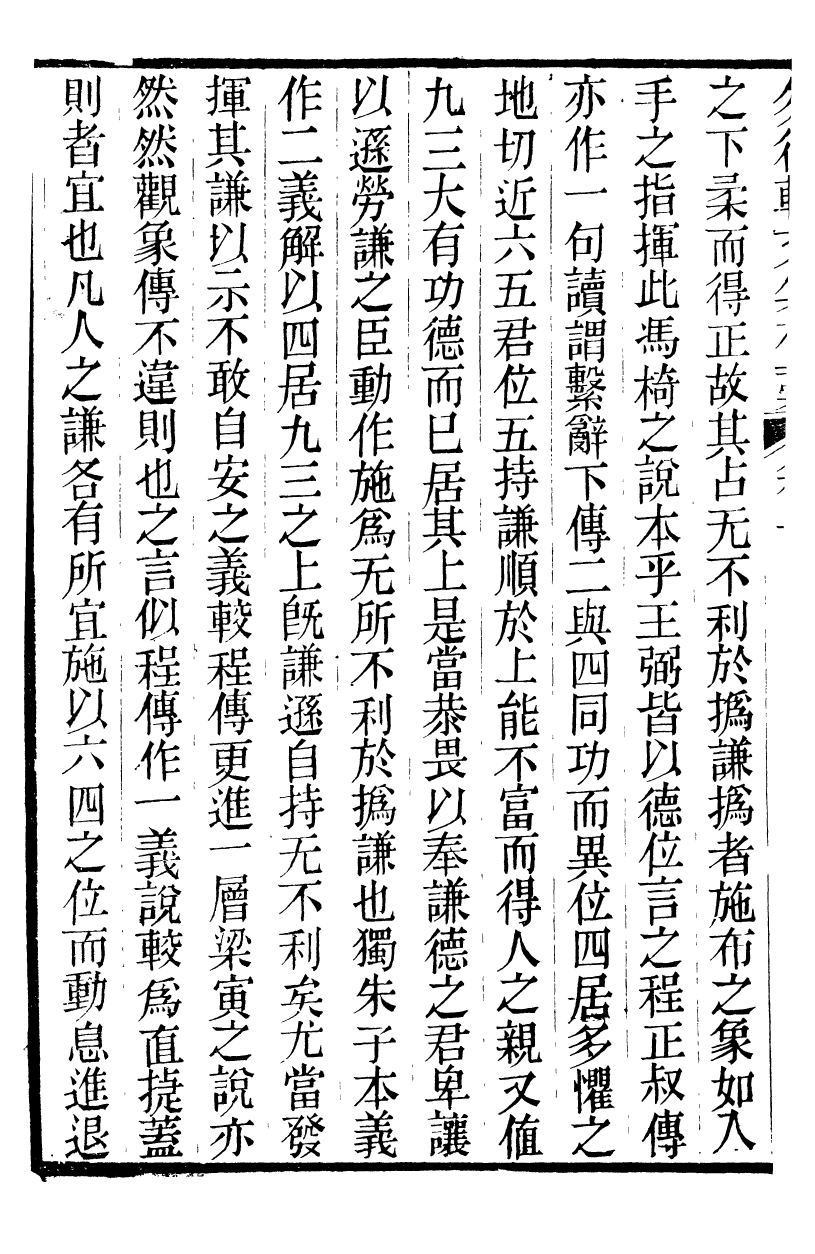 之下柔而得正故其占无不利於撝謙撝者施布之象如人
手之指揮此馮椅之說本乎王弼皆以德位言之程正叔傳
亦作一句讀謂繫辭下傳二與四同功而異位四居多懼之
地切近六五君位五持謙順於上能不富而得人之親又值
九三大有功德而已居其上是當恭畏以奉謙德之君卑讓
以遜勞謙之臣動作施爲无所不利於撝謙也獨朱子本義
作二義解以四居九三之上旣謙遜自持无不利矣尤當發
揮其謙以示不敢自安之義較程傳更進一層梁寅之說亦
然然觀象傳不違則也之言似程傳作一義說較爲直捷蓋
則者宜也凡人之謙各有所宜施以六四之位而動息進退